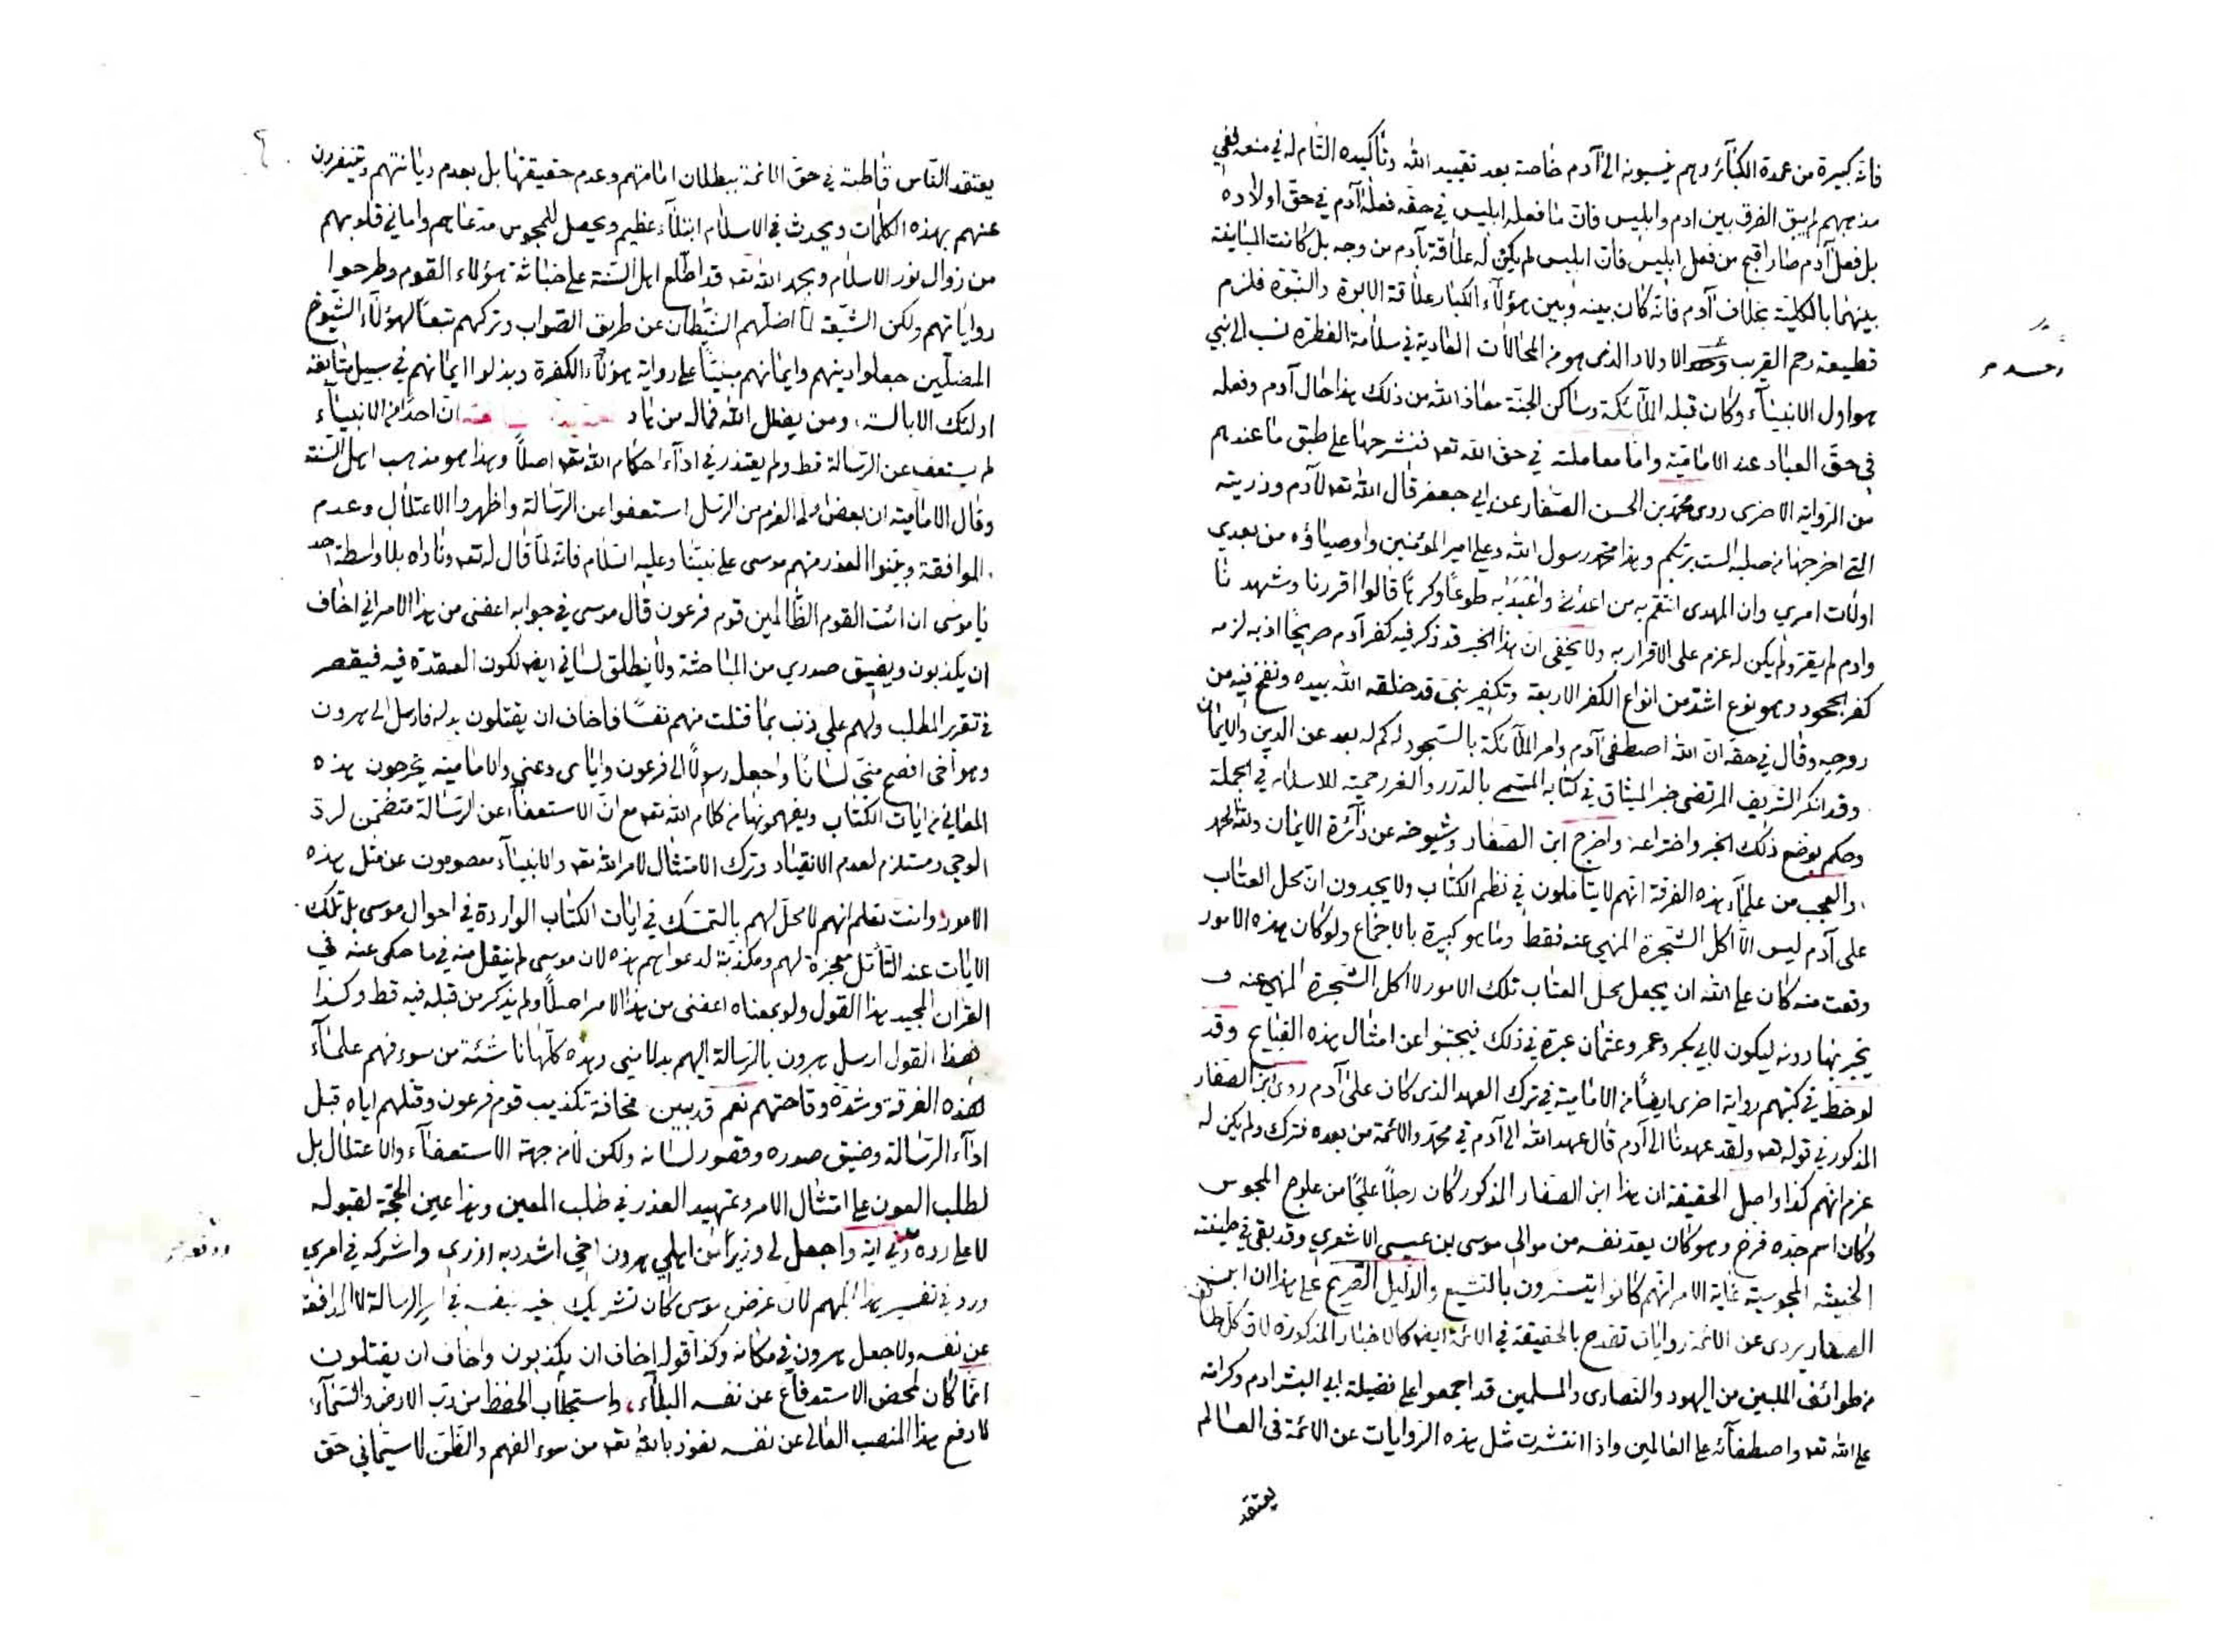 فانه كبيرة من عمدة الكبآئر وهم ينسبونه الى آدم خاصة بعد تقييد الله وتأكيده التام له في منعه ففي
مذهبهم لم يبق الفرق بين ادم وابليس فان ما فعله ابليس في حقه فعله آدم في حق اولاده
بل فعل آدم صار اقبح من فعل ابليس فان ابليس لم يكن له علاقة بآدم من وجه بل كانت المباينة
بينهما بالكلية بخلاف آدم فانه كان بينه وبين هؤلآء الكبار علاقة الابوة والبنوة فلزم
قطيعة رحم القريب الاولاد الذى هو من المحالات العادية في سلامة الفطرة نسب الى نبي
هو اول الانبيآء وكان قبلة الملآئكة وساكن الجنة معاذ الله من ذلك هذا حال آدم وفعله
في حق العباد عند الامامية واما معاملته في حق الله تعه فنشرحها على طبق ما عندهم
من الرواية الاخرى روى محمد بن الحسن الصفار عن ابي جعفر قال الله تعه لآدم وذريته
التي اخرجها من صلبه الست بربكم وهذا محمد رسول الله وعلي امير المؤمنين واوصياؤه من بعدي
اولات امري وان المهدى انتقم به من اعدائي واعبد به طوعًا وكرهًا قالوا اقررنا وشهدنا
وادم لم يقر ولم يكن له عزم على الاقرار به ولا يخفى ان هذا الخبر قد ذكر فيه كفر آدم صريحًا اذ به لزمه
كفر الجحود وهو نوع اشد من انواع الكفر الاربعة وتكفير نبى قد خلقه الله بيده ونفخ فيه من
روحه وقال في حقه ان الله اصطفى آدم وامر الملآئكة بالسجود له كم له بعد عن الدين والايمان
وقد انكر الشريف المرتضى خبر الميثاق في كتابه المسمى بالدرر والغرر حمية للاسلام في الجملة
وحكم بوضع ذلك الخبر واختراعه واخرج ابن الصفار وشيوخه عن دآئرة الايمان ولله الحمد
والعجب من علمآء هذه الفرقة انهم لا يتأملون في نظم الكتاب ولا يجدون ان محل العتاب
على آدم ليس الا اكل الشجرة المنهي عنه فقط وما هو كبيرة بالاجماع ولو كان هذه الامور
وقعت منه كان على الله ان يجعل محل العتاب تلك الامور لا اكل الشجرة المنهي عنه و
يخبر بها دونه ليكون لابي بكر وعمر وعثمان عبرة في ذلك فيجتنبوا عن امثال هذه القبايح وقد
لوحظ في كتبهم رواية اخرى ايضًا من الامامية في ترك العهد الذى كان على آدم روى ابن الصفار
المذكور في قوله تعه ولقد عهدنا الى آدم قال عهد الله الى آدم في محمد والائمة من بعده فترك ولم يكن له
عزم انهم كذا واصل الحقيقة ان هذا ابن الصفار المذكور كان رجلًا علجًا من علوج المجوس
وكان اسم جده فرخ وهو كان يعد نفسه من موالى موسى بن عيسى الاشعري وقد بقى في طينته
الخبيثة المجوسية غاية الامر انهم كانوا يتسترون بالتشيع والدليل الصريح على هذا ان ابن
الصفار يروى عن الائمة روايات تقدح بالحقيقة في الائمة ايضًا كالاخبار المذكورة لان كل طائفة
من طوائف المليين من اليهود والنصارى والمسلمين قد اجمعوا على فضيلة ابي البشر ادم وكرامته
على الله تعه واصطفآئه على العالمين واذا انتشرت مثل هذه الروايات عن الائمة في العالم
يعتقد
يعتقد الناس قاطبة في حق الائمة ببطلان امامتهم وعدم حقيقتها بل بعدم ديانتهم وتنفرون
عنهم بهذه الكلمات ويحدث في الاسلام ابتلآء عظيم ويحصل للمجوس مدعاهم واماني قلوبهم
من زوال نور الاسلام وبحمد الله تعه قد اطلع اهل السنة على خباثة هؤلاء القوم وطرحوا
رواياتهم ولكن الشيعة لما اضلهم الشيطان عن طريق الصواب وتركهم تبعًا لهؤلآء الشيوخ
المضلين جعلوا دينهم وايمانهم مبنيًا على رواية هؤلآء الكفرة وبذلوا ايمانهم في سبيل متابعة
اولئك الابالسة ومن يضلل الله فماله من هاد ان احدًا من الانبيآء
لم يستعف عن الرسالة قط ولم يعتذر في ادآء احكام الله تعه اصلًا وهذا هو مذهب اهل السنة
وقال الامامية ان بعض اولي العزم من الرسل استعفوا عن الرسالة واظهروا الاعتلال وعدم
الموافقة وبينوا العذر منهم موسى على نبينا وعليه السلام فانه لما قال له تعه وناداه بلا واسطة احد
يا موسى ان ائت القوم الظالمين قوم فرعون قال موسى في جوابه اعفنى من هذا الامر اني اخاف
ان يكذبون ويضيق صدري من المباحثة ولا ينطلق لساني ايضًا لكون العقدة فيه فيقصر
في تقرير المطلب ولهم علي ذنب بما قتلت منهم نفسًا فاخاف ان يقتلون بدله فارسل الى هرون
وهو أخى افصح منى لسانًا واجعل رسولًا الى فرعون واياى دعني والامامية يخرجون هذه
المعاني من ايات الكتاب ويفهمونها من كلام الله تعه مع ان الاستعفآء عن الرسالة متضمن لرد
الوحي ومستلزم لعدم الانقياد وترك الامتثال لامر الله تعه والانبيآء معصومون عن مثل هذه
الامور وانت تعلم انهم لا محل لهم بالتمسك في ايات الكتاب الواردة في احوال موسى بل تلك
الايات عند التأمل معجزة لهم ومكذبة لدعواهم هذه لان موسى لم ينقل منه في ما حكى عنه في
القران المجيد هذا القول ولو بمعناه اعفنى من هذا الامر اصلًا ولم يذكر من قبله فيه قط وكذا
هذا القول ارسل هرون بالرسالة اليهم بدلا مني وهذه كلها ناشئة من سوء فهم علمآء
هذه الفرقة وشدة وقاحتهم نعم قد بين مخافة تكذيب قوم فرعون وقتلهم اياه قبل
ادآء الرسالة وضيق صدره وقصور لسانه ولكن لا من جهة الاستعفآء والاعتلال بل
لطلب العون على امتثال الامر وتمهيد العذر في طلب المعين وهذا عين الحجة لقبوله
لا على رده وفي اية واجعل لى وزيرًا من اهلي هرون اخي اشدد به ازرى واشركه في امري
ورد في تفسير هذا المبهم لان غرض موسى كان تشريك اخيه بنفسه في امر الرسالة لا المدافعة
عن نفسه ولا جعل هرون في مكانه وكذا قوله اخاف ان يكذبون واخاف ان يقتلون
انما كان لمحض الاستدفاع عن نفسه البلآء، واستجلاب الحفظ من رب الارض والسمآء،
لا دفع هذا المنصب العالى عن نفسه نعوذ بالله تعه من سوء الفهم والظن لا سيما في حق